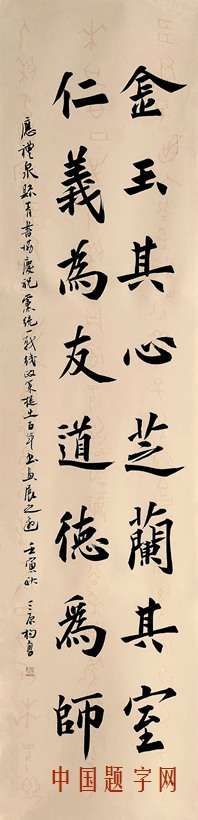 金玉其心芝蘭其室
仁義為友道德爲師
應禮泉縣青書協慶祝黨统一战线政策提出百年书画展之邀 壬寅秋 三原
中国题字网